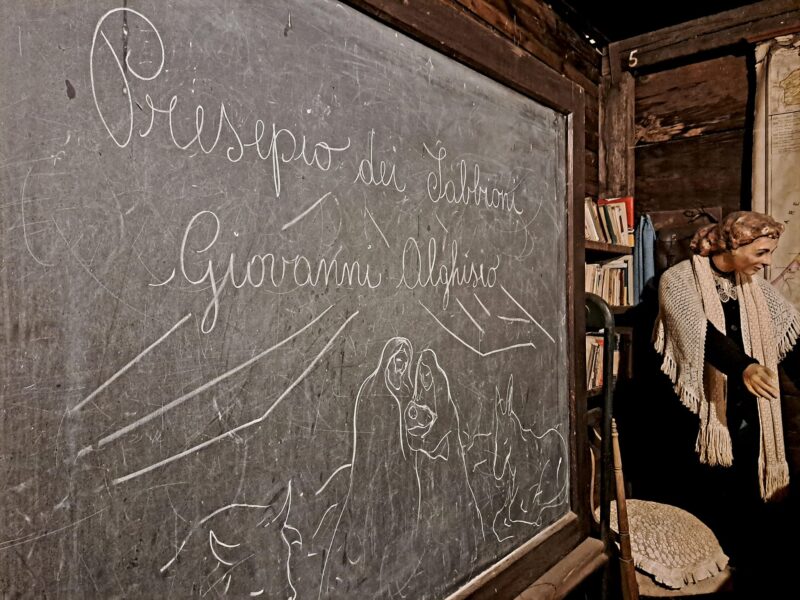 Presepio dei Sabbioni
Giovanni Alghisio
5